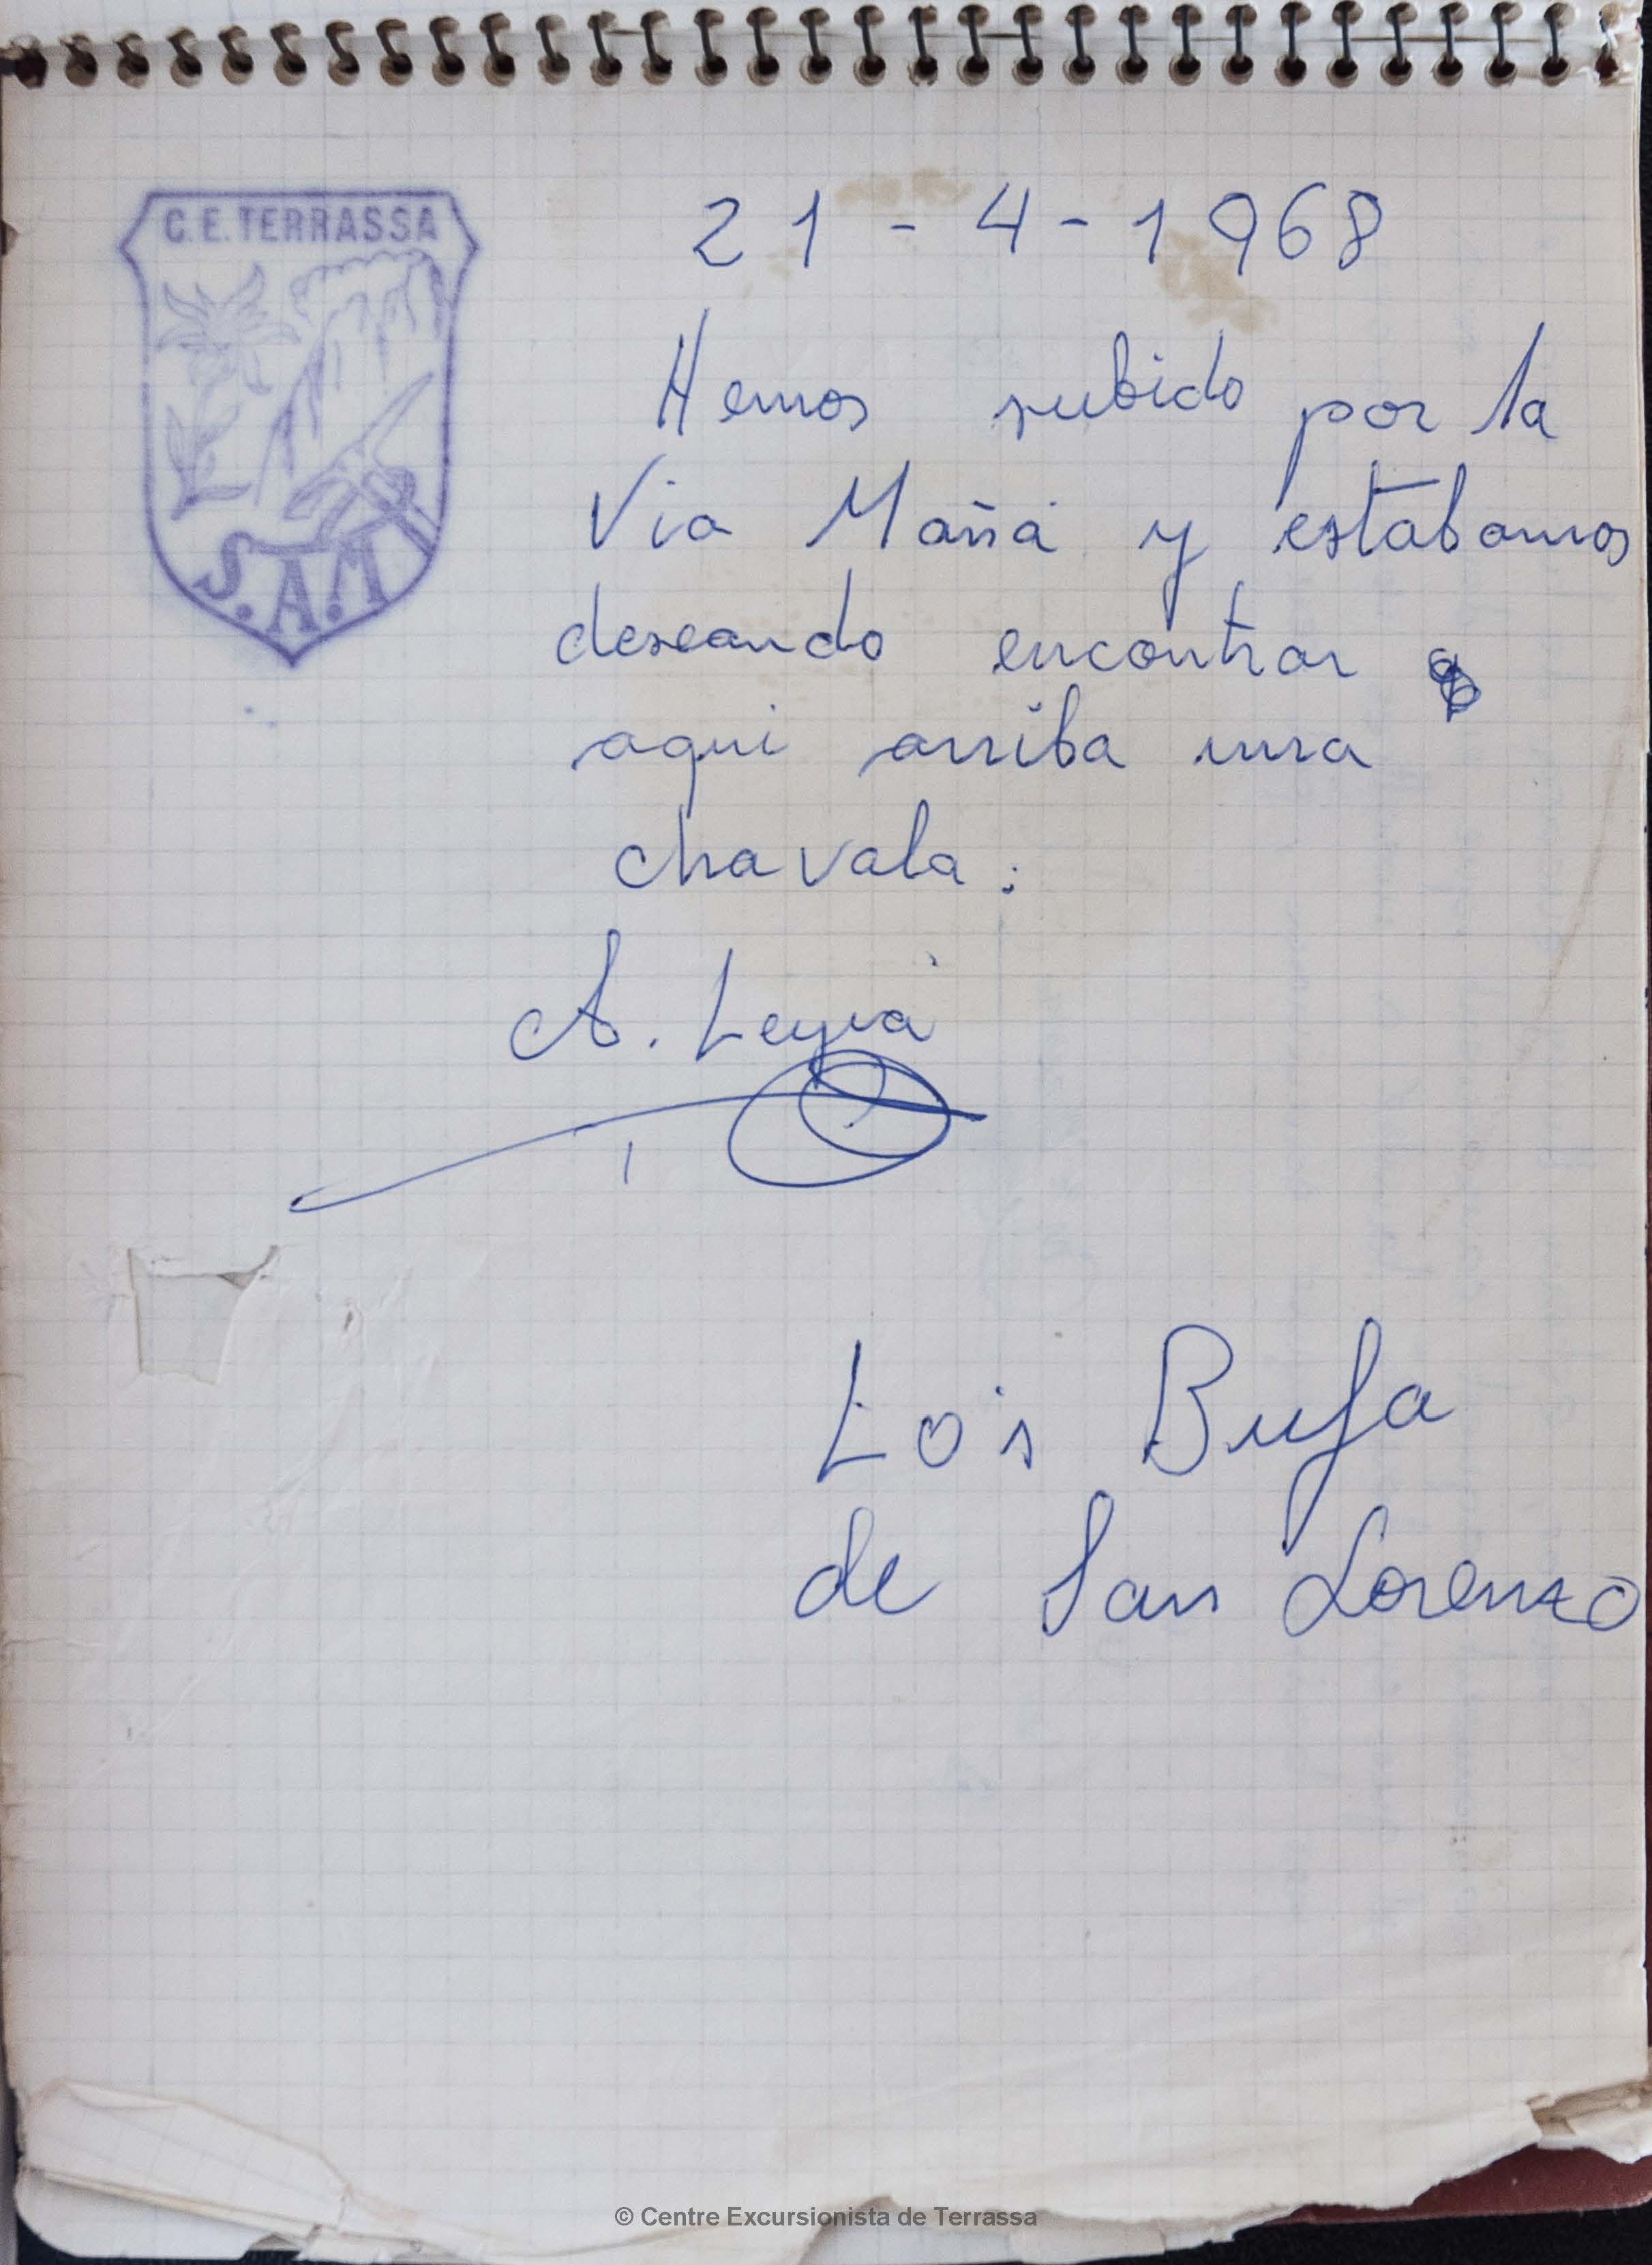 C. E. TERRASSA
S.A.M
21-4-1968
Hemos subido por la
Via Mañá y estabamos
deseando encontrar
aqui arriba una
chavala.
A. Leyva
Lo's Bufa
de San Lorenzo
© Centre Excursionista de Terrassa